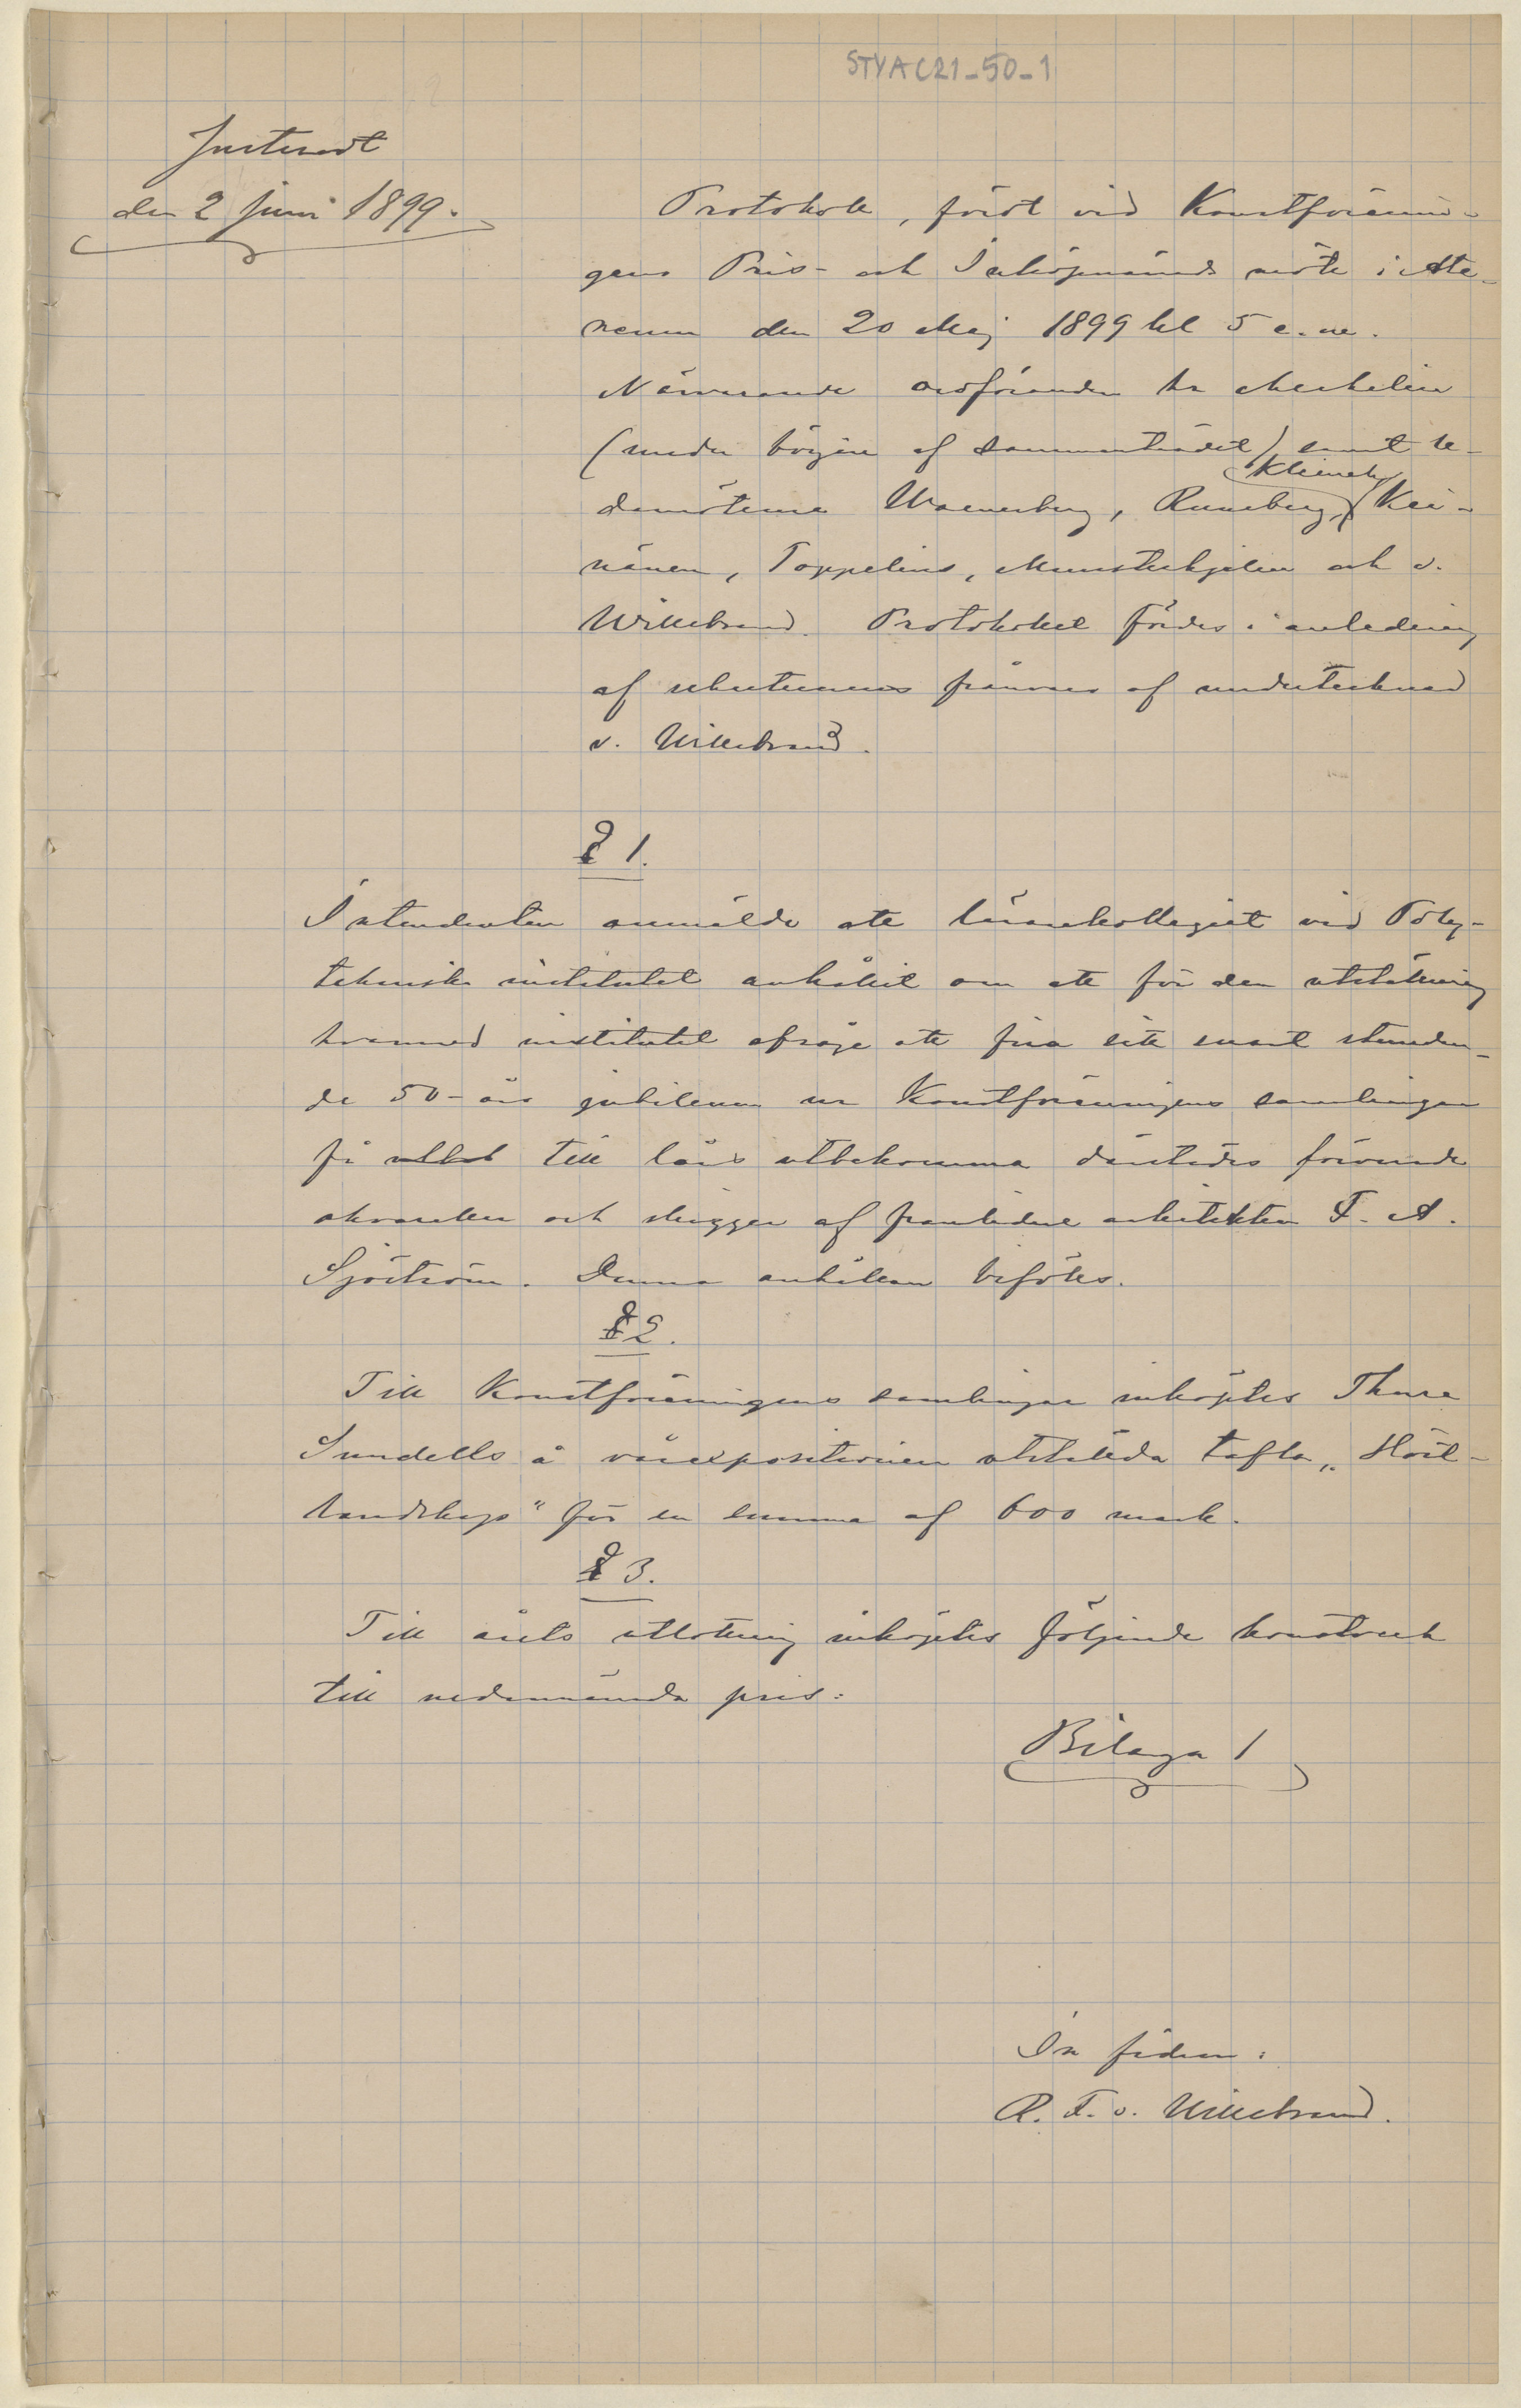 STYAC21-50-1
Justeradt
den 2 juni 1899.
Protokoll, fördt vid Konstförenin-
gens Pris- och Inköpsnämnds möte i Ate-
neum den 20 Maj 1899 kl 5 e.m.
Närvarande ordföranden hr Mechelin
(under början af sammanträdet) samt le-
Klineckowström
damöterna Waenerberg, Runeberg, Kei-
nänen, Toppelius, Munsterhjelm och v.
Willebrand. Protokollet fördes i anledning
af sekreterarens frånvaro af undertecknad
v. Willebrand.
§ 1.
Intendenten anmälde att lärarekollegiet vid Poly-
tekniska institutet anhållit om att för den utställning
hvarmed institutet afsåge att fira sitt snart stunden-
de 50-års jubileum ur Konstföreningens samlingar
få till låns utbekomma därstädes förvarade
akvareller och skizzer af framlidne arkitekten F. A.
Sjöström. Denna anhållan bifölls.
§ 2.
Till Konstföreningens samlingar inköptes Thure
Sundells å vårexpositionen utstälda tafla „Höst-
landskap“ för en summa af 600 mark.
§ 3.
Till årets utlottning inköptes följande konstverk
till nedannämnda pris:
Bilaga 1
In fidem:
R. F. v. Willebrand.